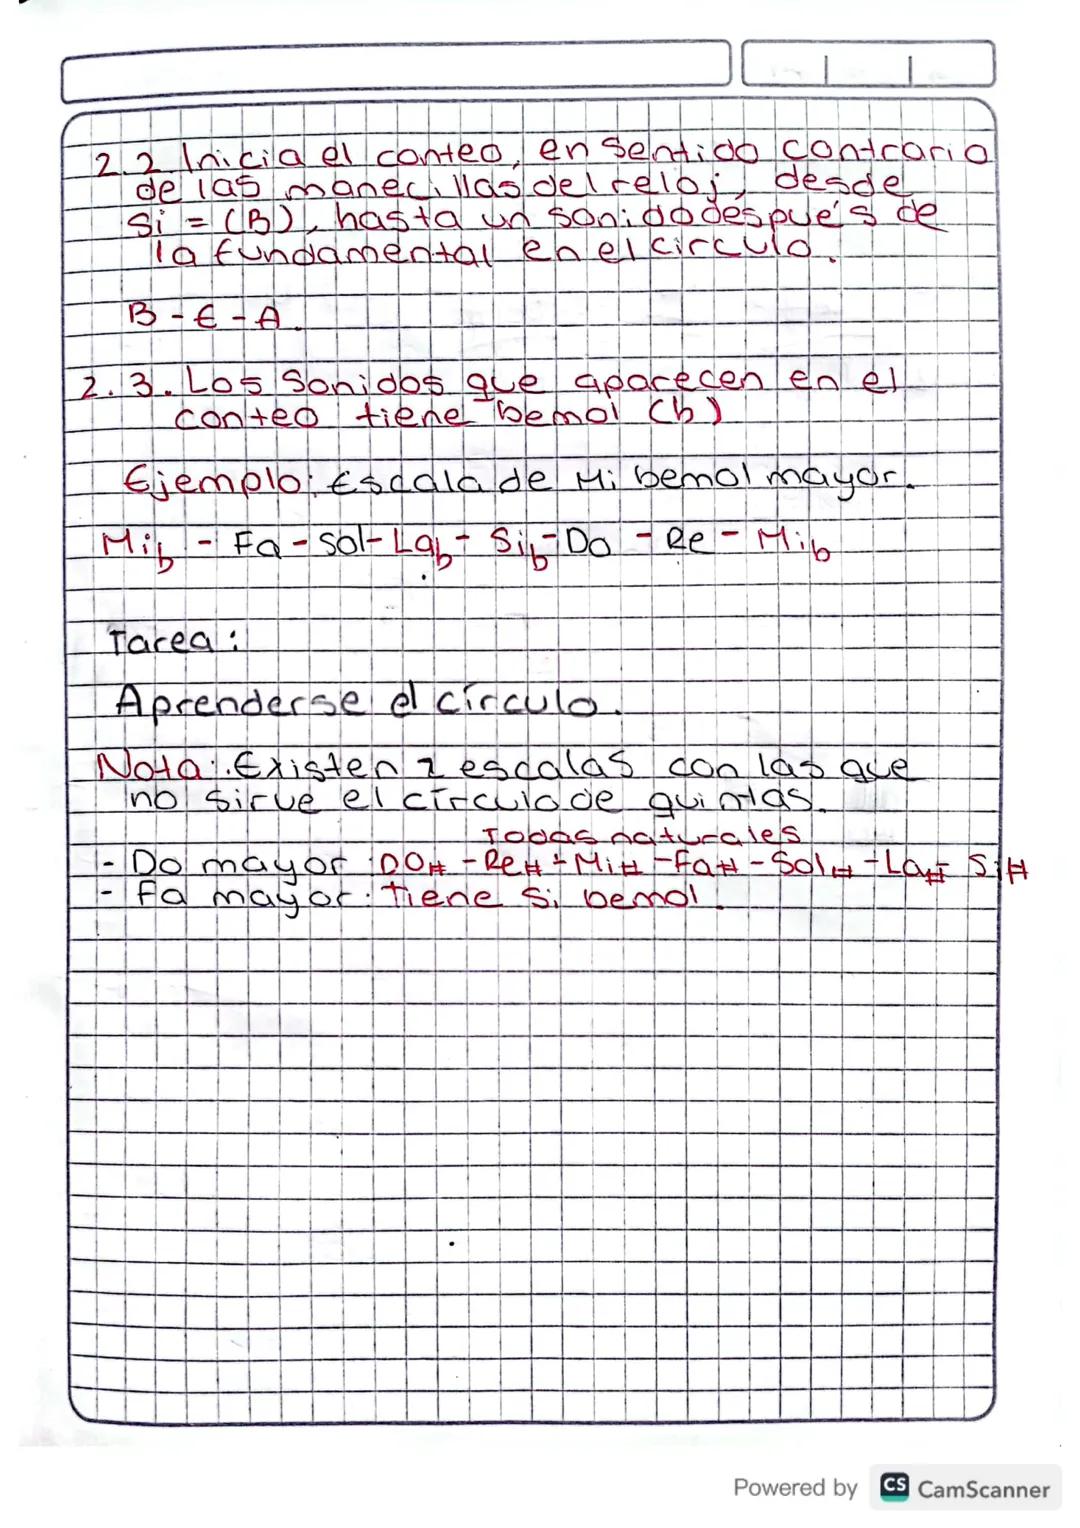 2.2. Inicia el conteo, en sentido contrario
de las manecillas del reloj, desde
Si = (B), hasta un sonido después de
la fundamental en el circulo.
B - E - A.
2.3. Los Sonidos que aparecen en el
conteo tiene bemol (b)
Ejemplo: Escala de Mi bemol mayor.
Mib - Fa - Sol - Lab - Sib - Do - Re - Mib
Tarea:
Aprenderse el círculo.
Nota: Existen 2 escalas con las que
no sirve el círculo de quintas.
Todas naturales
- Do mayor: DO# - Re# - Mi# - Fa# - Sol# - La# - Si#
- Fa mayor: tiene Si bemol.
Powered by CS CamScanner